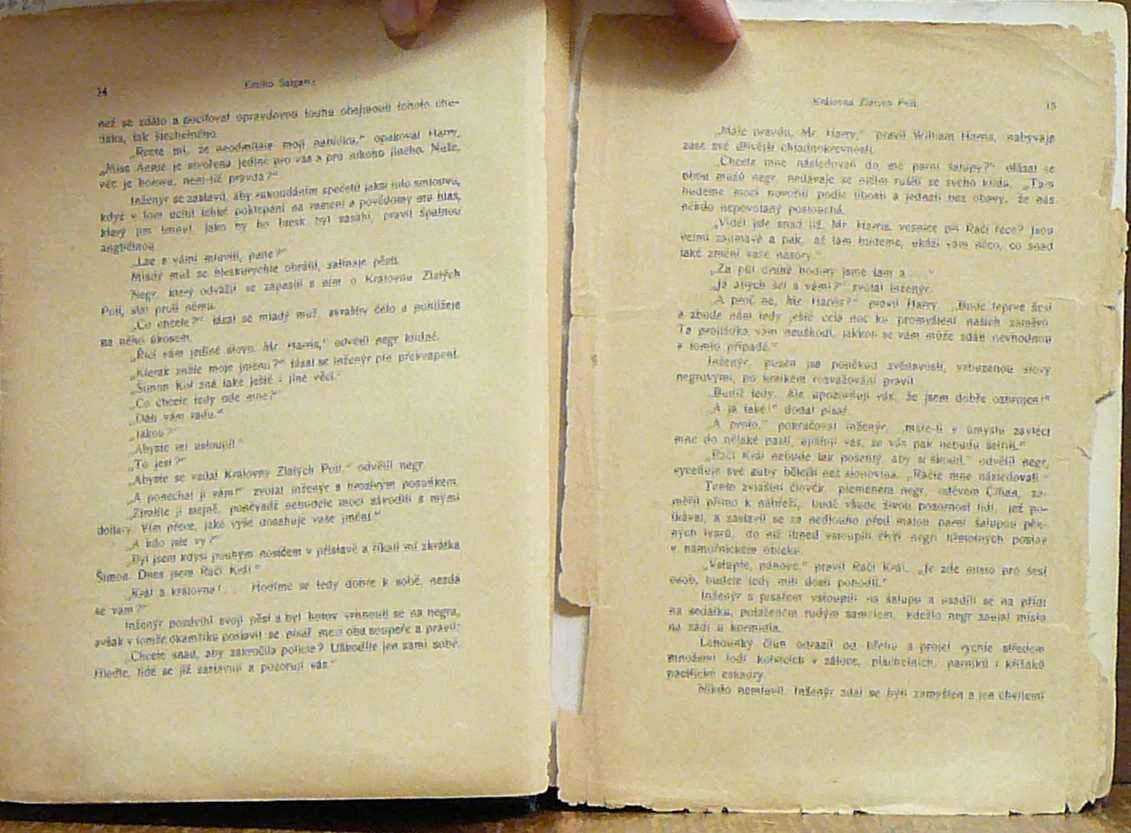 14
Emilio Salgari:
než se zdálo a pociťoval opravdovou touhu obejmouti tohoto
táka, tak šlechetného.
„Rcete mi, že neodmítáte moji nabídku,“ opakoval Harry.
„Miss Annie je stvořena jedině pro vás a pro nikoho jiného. Nuže,
věc je hotova, není-liž pravda?“
Inženýr se zastavil, aby rukoudáním zpečetil jaksi tuto smlouvu,
když v tom ucítil lehké poklepání na rameni a povědomý mu hlas,
který jím hnul, jako by ho blesk byl zasáhl, pravil špatnou
angličtinou
„Lze s vámi mluviti, pane?“
Mladý muž se bleskurychle obrátil, zatínaje pěsti.
Negr, který odvážil se zápasiti s ním o Královnu Zlatých
Polí, stál proti němu.
„Co chcete?“ tázal se mladý muž, svraštiv čelo a pohlížeje
na něho úkosem.
„Říci vám jediné slovo, Mr. Harris,“ odvětil negr klidně.
„Kterak znáte moje jméno?“ tázal se inženýr pln překvapení.
„Simon Kol zná také ještě i jiné věci.“
„Co chcete tedy ode mne?“
„Dáti vám radu.“
„Jakou?“
„Abyste mi ustoupil.“
„To jest?“
„Abyste se vzdal Královny Zlatých Polí,“ odvětil negr.
„A ponechal ji vám!“ zvolal inženýr s hrozivým posuňkem.
„Ztratíte ji stejně, poněvadž nebudete moci závoditi s mými
dollary. Vím přece, jaké výše dosahuje vaše jmění.“
„A kdo jste vy?“
„Byl jsem kdysi pouhým nosičem v přístavě a říkali mi zkrátka
Šimon. Dnes jsem Račí Král.“
„Král a královna!... Hodíme se tedy dobře k sobě, nezdá
se vám?“
Inženýr pozdvihl svoji pěst a byl hotov vrhnouti se na negra,
avšak v tomže okamžiku postavil se písař mezi oba soupeře a pravil:
„Chcete snad, aby zakročila policie? Uškodíte jen sami sobě.
Hleďte, lidé se již zastavují a pozorují vás.“
Královna Zlatých Polí.
15
„Máte pravdu, Mr. Harry,“ pravil William Harris, nabývaje
zase své dřívější chladnokrevnosti.
„Chcete mne následovati do mé parní šalupy?“ otázal se
obou mužů negr, nedávaje se ničím rušiti ze svého klidu. „Tam
budeme moci hovořiti podle libosti a jednati bez obavy, že nás
někdo nepovolaný poslouchá.
„Viděl jste snad již, Mr. Harris, vesnice při Račí řece? Jsou
velmi zajímavé a pak, až tam budeme, ukáži vám něco, co snad
také změní vaše názory.“
„Za půl druhé hodiny jsme tam a...“
„Já abych šel s vámi?“ zvolal inženýr.
„A proč ne, Mr. Harris?“ pravil Harry. „Bude teprve šest
a zbude nám tedy ještě celá noc ku promyšlení našich záměrů.
Ta projížďka vám neuškodí, jakkoli se vám může zdáti nevhodnou
v tomto případě.“
Inženýr, puzen jsa poněkud zvědavostí, vzbuzenou slovy
negrovými, po krátkém rozvažování pravil
„Budiž tedy. Ale upozorňuji vás, že jsem dobře ozbrojen!“
„A já také!“ dodal písař.
„A proto,“ pokračoval inženýr, „máte-li v úmyslu zavléci
mne do nějaké pasti, ujišťuji vás, že vás pak nebudu šetřiti.“
„Račí Král nebude tak pošetilý, aby si škodil,“ odvětil negr,
vyceňuje své zuby bělejší než slonovina. „Račte mne následovati.“
Tento zvláštní člověk, plemenem negr, oděvem Číňan, za-
měřil přímo k nábřeží, budě všude živou pozornost lidí, jež po-
tkával, a zastavil se za nedlouho před malou parní šalupou pěk-
ných tvarů, do níž ihned vstoupili čtyři negři hřmotných postav
v námořnickém obleku.
„Vstupte, pánové,“ pravil Račí Král. „Je zde místo pro šest
osob, budete tedy míti dosti pohodlí.“
Inženýr s písařem vstoupili na šalupu a usadili se na přídi
na sedátku, potaženém rudým sametem, kdežto negr zaujal místo
na zádi u kormidla.
Lehounký člun odrazil od břehu a projel rychle středem
množství lodí kotvících v zálivě, plachetních, parníků i křižáků
pacifické eskadry.
Nikdo nemluvil. Inženýr zdál se býti zamyšlen a jen chvílemi